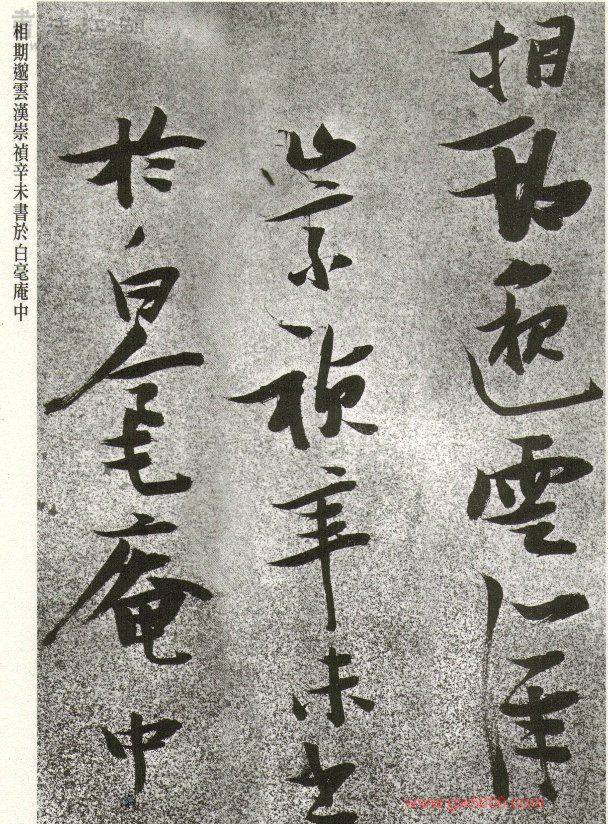 相期邈雲漢
崇禎辛未書
於白毫庵中
相期邈雲漢崇禎辛未書於白毫庵中
www.gwshaon.com